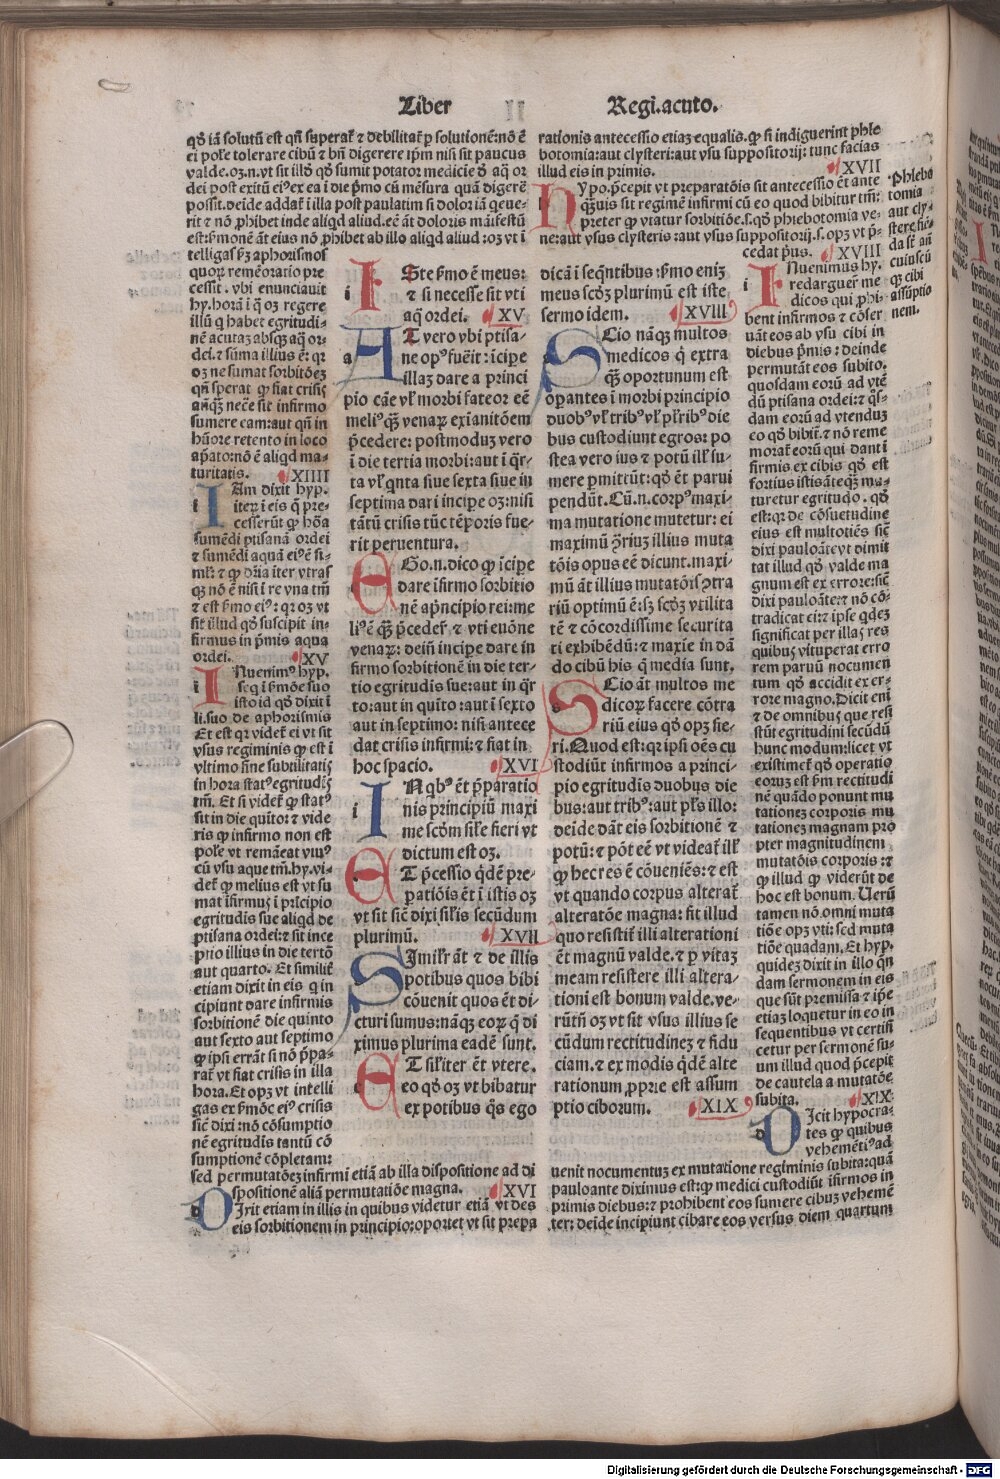 Liber II Regi.acuto.
qđ iā solutū est qñ superať ⁊ debilitať ꝑ solutionē:nō ē
ei poſſe tolerare cibū ⁊ bñ digerere ipm niſi ſit paucus
valde.oꝫ.n.vt ſit illō qđ ſumit potator medicie đ aq̄ or
dei poſt exitū eiꝰ ex ea ī die p̄mo cū mēſura quā digerē
poſſit.deīde addať ī illa poſt paulatim ſi dolor iā quieue-
rit ⁊ nō ꝓhibet inde aliqđ aliud.eē āt doloris māifeſtū
eſt:ſ̄monē āt eius nō ꝓhibet ab illo aliqđ aliud:oꝫ vt ī
telligas ꝑ̄ꝫ aphoriſmos
quoꝝ rememoratio pre
ceſſit. vbi enunciauit
hy.horā ī q̄ oꝫ regere
illū q̄ habet egritudi-
nē acutaꝫ abſqꝫ aq̄ or-
dei.⁊ ſūma illius ē: qꝛ
oꝫ ne ſumat ſorbitōeꝫ
qñ ſperat ꝙ fiat criſis
añq̄ꝫ necē ſit infirmo
ſumere eam:aut qñ in
hūore retento in loco
aꝑato:nō ē aliqđ ma-
turitatis. XIIII
IAm dixit hyp.
iteꝝ ī eis q̄ pre-
ceſſerūt ꝙ hōa
ſumēdi ptiſanā ordei
⁊ ſumēdi aquā eiꝰ ē ſi-
mľ: ⁊ ꝙ dr̄ia iter vtraſ
qꝫ nō ē niſi ī re vna tm̄
⁊ eſt ſ̄mo eiꝰ: qꝛ oꝫ vt
ſit illud qđ ſuſcipit in-
firmus in p̄mis aqua
ordei. XV
INuenimꝰ hyp.
ſeq̄ ī ſ̄mōe ſuo
iſto id qđ dixit ī
li.ſuo de aphoriſmis
Et eſt qꝛ videť ei vt ſit
vſus regiminis ꝙ eſt ī
vltimo fine ſubtilitatis
in hora ſtatꝰ egritudīs
tm̄. Et ſi videť ꝙ ſtatꝰ
ſit in die quīto: ⁊ vide
ris ꝙ infirmo non eſt
poſſe vt remāeat viuꝰ
cū vſu aque tm̄.hy.vi-
deť ꝙ melius eſt vt ſu
mat īfirmus ī prīcipio
egritudis ſue aliqđ de
ptiſana ordei:⁊ ſit ince
ptio illius in die tertō
aut quarto. Et ſimiliť
etiam dixit in eis q̄ in-
cipiunt dare infirmis
ſorbitionē die quinto
aut ſexto aut ſeptimo
ꝙ ipſi errāt ſi nō p̄pa-
rať vt fiat criſis in illa
hora.Et opꝫ vt intelli
gas ex ſ̄mōe eiꝰ criſis
ſic̄ dixi :nō cōſumptio
nē egritudīs tantū cō
ſumptionē cōpletam:
ſed permutatōeꝫ infirmi etiā ab illa diſpoſitione ad di
ſpoſitionē aliā permutatiōe magna. XVI
DIrit etiam in illis in quibus videtur etiā vt des
eis ſorbitionem in principio:oportet vt ſit prepa
ISte ſ̄mo ē meus:
⁊ ſi neceſſe ſit vti
aq̄ ordei. XV
AT vero vbi ptiſa-
ne opꝰ fuēit: īcipe
illaꝫ dare a princi
pio cāe vľ morbi fateor eē
meliꝰ q̄ꝫ venaꝝ exīanitōem
p̄cedere: poſtmoduꝫ vero
ī die tertia morbi:aut ī q̄r-
ta vľ qnta ſiue ſexta ſiue in
ſeptima dari incipe oꝫ:niſi
tātū criſis tūc tēporis fue-
rit peruentura.
EGo.n.dico ꝙ īcipe
dare īfirmo ſorbitio
nē apͥncipio rei:me
liꝰ ē q̄ꝫ p̄cedeř ⁊ vti euōne
venaꝝ: dein̄ incipe dare in
firmo ſorbitionē in die ter-
tio egritudis ſue:aut in q̄r
to:aut in quīto :aut ī ſexto
aut in ſeptimo: niſi antece
dat criſis infirmi:⁊ fiat in
hoc ſpacio. XVI
INqbꝰ ēt p̄paratio
nis principiū maxi
me ſcōm ſiľe fieri vt
dictum eſt oꝫ.
ET p̄ceſſio qđē pre-
patiōis ēt ī iſtis oꝫ
vt ſit ſic̄ dixi ſiľis ſecūdum
plurimū. XVII
SImiľr āt ⁊ de illis
potibus quos bibi
cōuenit quos ēt di-
cturi ſumus:nāqꝫ eoꝝ q̄ di
ximus plurima eadē ſunt.
ET ſiľiter ēt vtere.
eo qđ oꝫ vt bibatur
ex potibus q̄s ego
rationis anteceſſio etiaꝫ equalis.ꝙ ſi indiguerint phle
botomia:aut clyſteri:aut vſu ſuppoſitorij: tunc facias
illud eis in primis. XVII
HYpo.p̄cepit vt preparatōis ſit anteceſſio ēt ante
q̄ꝫuis ſit regimē infirmi cū eo quod bibitur tm̄:
preter ꝙ vtatur ſorbitiōe.ſ.qđ phlebotomia ve-
ne:aut vſus clyſteris :aut vſus ſuppoſitorij.ſ.opꝫ vt p̄-
cedat p̄us. XVIII
Phlebo
tomia
aut cly-
ſtere ſiē-
da ſt añ
cuiuſcū
qꝫ cibi
aſſūptio
nem.
dicā ī ſeq̄ntibus :ſ̄mo eniꝫ
meus ſcđꝫ plurimū eſt iſte
ſermo idem. XVIII
SCio nāqꝫ multos
medicos q̄ extra
q̄ꝫ oportunum eſt
opantes ī morbi principio
duobꝰ vľ tribꝰ vľ pľribꝰ die
bus cuſtodiunt egros: po
ſtea vero ius ⁊ potū illꝰ ſu-
mere pmittūt: qđ ēt parui
pendūt. Cū.n.corpꝰ maxi-
ma mutatione mutetur: ei
maximū ꝯriuꝫ illius muta
tōis opus eē dicunt.maxi-
mū āt illius mutatōis ꝯtra
riū optimū ē:ſꝫ ſcđꝫ vtilita
tē ⁊ cōcordiſſime ſecurita
ti exhibēdū: ⁊ maxīe in dā
do cibū his q̄ media ſunt.
SCio āt multos me
dicoꝝ facere cōtra
riū eius qđ opꝫ fie-
ri.Quod eſt: qꝛ ipſi oēs cu
ſtodiūt infirmos a princi-
pio egritudis duobus die
bus:aut tribꝰ:aut pľs illo:
deīde dāt eis ſorbitionē ⁊
potū: ⁊ pōt eē vt videať illꝭ
ꝙ hec res ē cōueniēs: ⁊ eſt
vt quando corpus alterať
alteratōe magna: ſit illud
quo reſiſtiť illi alterationi
ēt magnū valde. ⁊ ꝑ vitaꝫ
meam reſiſtere illi altera-
tioni eſt bonum valde.ve-
rūtn̄ oꝫ vt ſit vſus illius ſe
cūdum rectitudineꝫ ⁊ fidu
ciam. ⁊ ex modis qđē alte
rationum ꝓprie eſt aſſum
ptio ciborum. XIX
INuenimus hy.
redarguer me
dicos qui ꝓhi-
bent infirmos ⁊ cōſer
uāt eos ab vſu cibi in
diebus p̄mis: deinde
permutāt eos ſubito.
quoſdam eorū ad vtē
dū ptiſana ordei: ⁊ q̄ſ-
dam eorū ad vtenduꝫ
eo qđ bibiť.⁊ nō reme
morať eorū qui dant ī
firmis ex cibis qđ eſt
fortius iſtis āteq̄ꝫ ma-
turetur egritudo. qđ
eſt:qꝛ de cōſuetudine
eius eſt multotiēs ſic̄
dixi paulo āte vt dimit
tat illud qđ valde ma
gnum eſt ex errore:ſic̄
dixi paulo āte: ⁊ nō cō-
tradicat ei: ⁊ ipſe qđeꝫ
ſignificat per illaꝫ res
quibuſ vituperat erro
rem paruū nocumen
tum qđ accidit ex er-
rore magno.Dicit enī
⁊ de omnibus que reſi
ſtūt egritudini ſecūdū
hunc modum:licet vt
exiſtimeť qđ operatio
eoruꝫ eſt ꝑ̄m rectitudi
nē quādo ponunt mu
tationeꝫ corporis mu
tationeꝫ magnam pro
pter magnitudinem
mutatōis corporis: ⁊
ꝙ illud ꝙ viderūt de
hoc eſt bonum.Uerū
tamen nō omni muta
tiōe opꝫ vti: ſed muta
tiōe quadam.Et hyp.
quideꝫ dixit in illo q̄n
dam ſermonem in eis
que ſūt premiſſa ⁊ ip̄e
etiaꝫ loquetur in eo in
ſequentibus vt certifi
cetur per ſermonē ſu-
um illud quod p̄cepit
de cautela a mutatōe
ſubita. XIX
DIcit hypocra-
tes ꝙ quibus
vehemētiꝰ ad
uenit nocumentuꝫ ex mutatione regiminis ſubita:quā
paulo ante diximus eſt:ꝙ medici cuſtodiūt ifirmos in
primis diebus: ⁊ prohibent eos ſumere cibuꝫ vehemē
ter: deīde incipiunt cibare eos verſus diem quartum
Digitalisierung gefördert durch die Deutsche Forschungsgemeinschaft - DFG